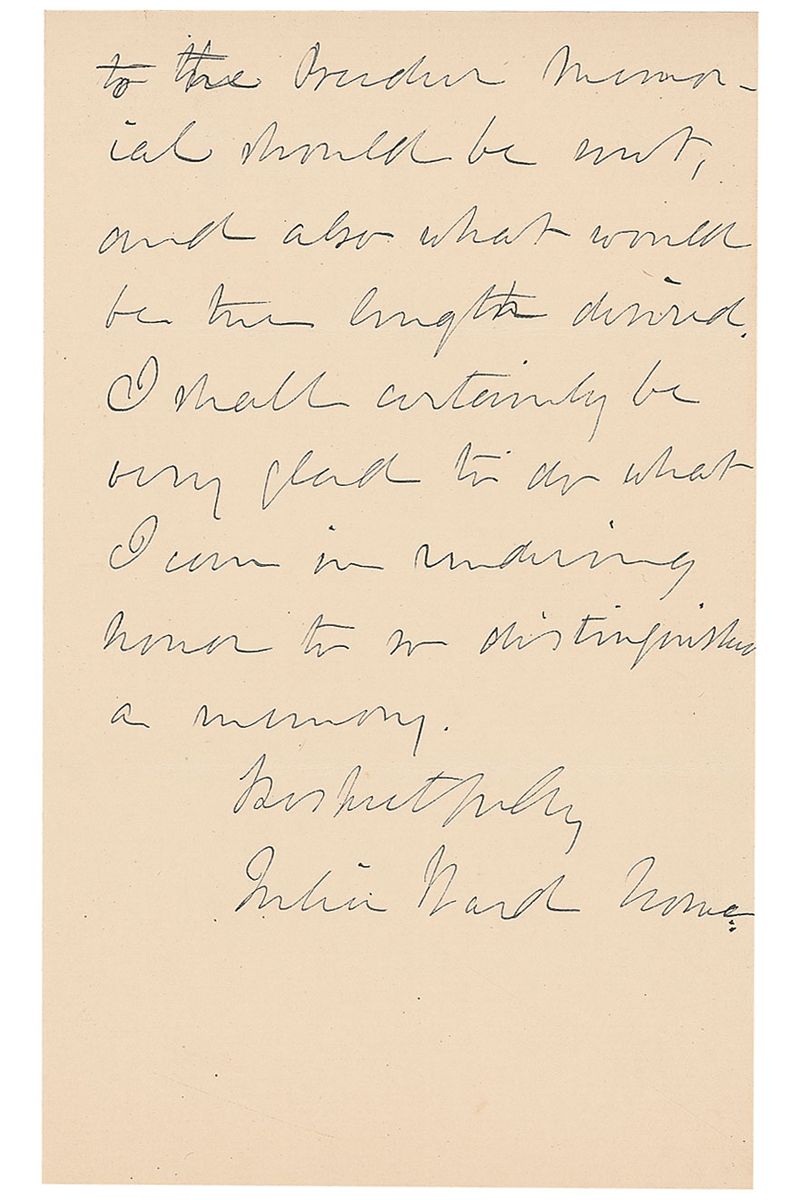 to the Beecher Memor-
ial should be sent,
and also what would
be the length desired.
I shall certainly be
very glad to do what
I can in rendering
honor to so distinguished
a memory.
Respectfully
Julia Ward Howe.